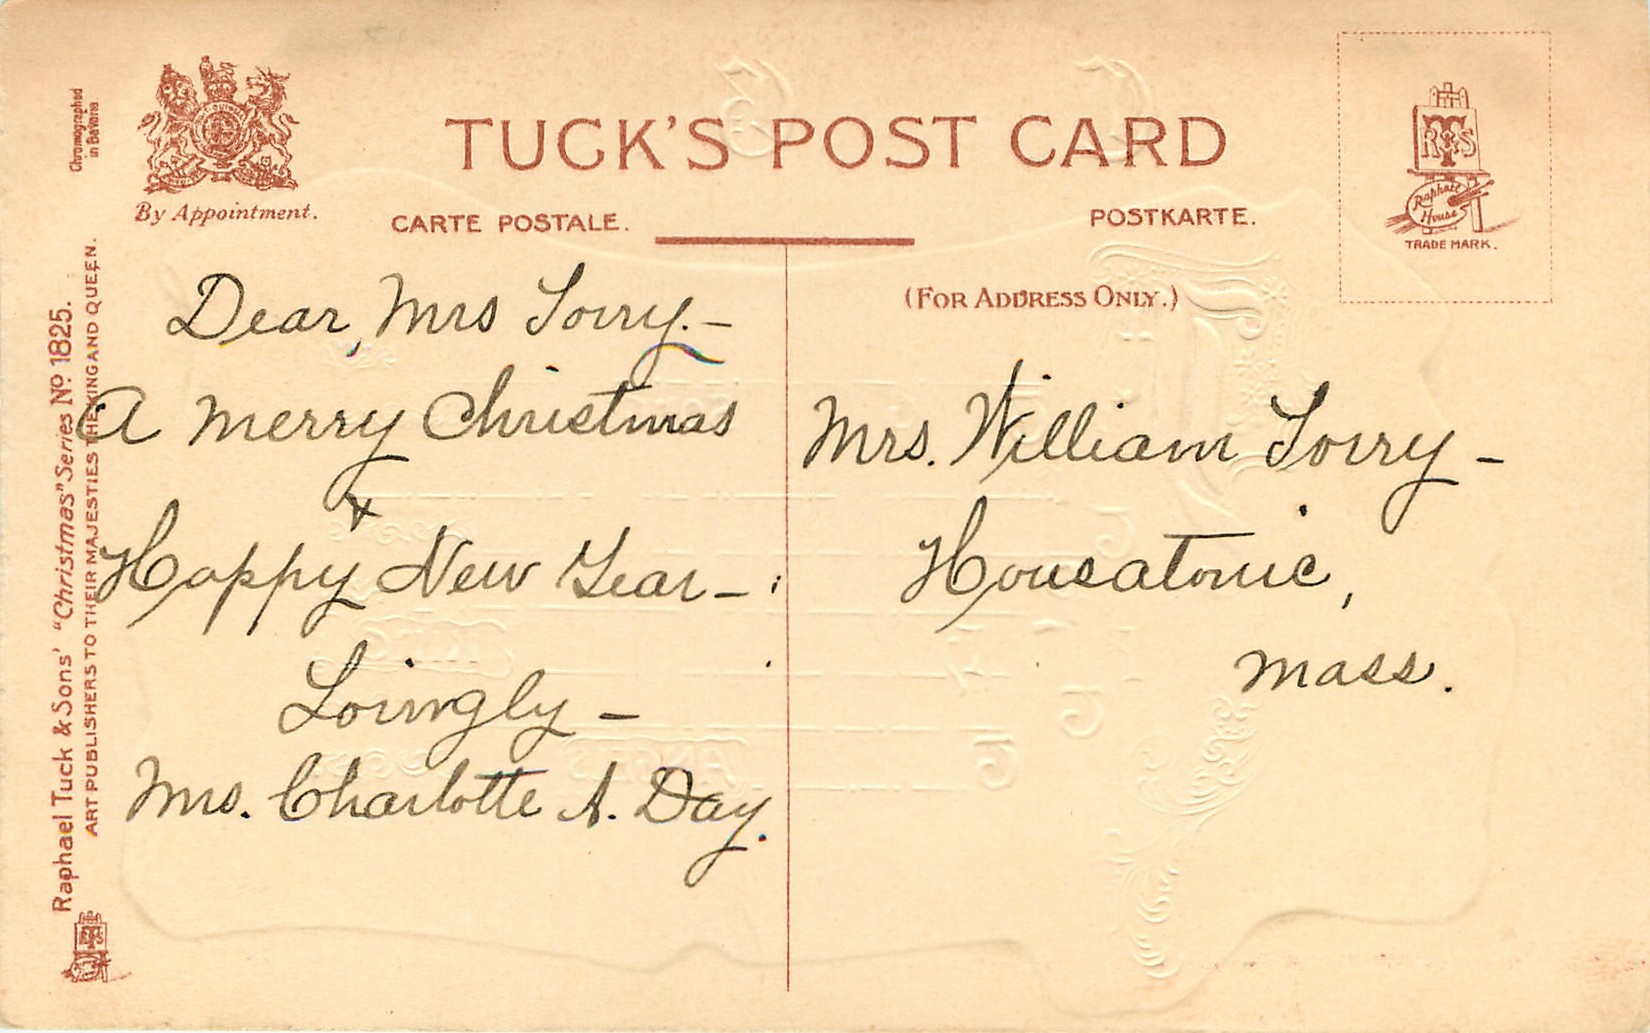 Chromographed
in Bavaria.
By Appointment.
TUCK'S POST CARD
CARTE POSTALE.
POSTKARTE.
RTS
Raphael
House
TRADE MARK.
(FOR ADDRESS ONLY.)
Raphael Tuck & Sons' "Christmas" Series No 1825.
ART PUBLISHERS TO THEIR MAJESTIES THE KING AND QUEEN.
Dear, Mrs Lorry.—
A merry Christmas
+
Happy New Year—
Lovingly—
Mrs. Charlotte A. Day.
Mrs. William Lorry—
Housatonic,
Mass.